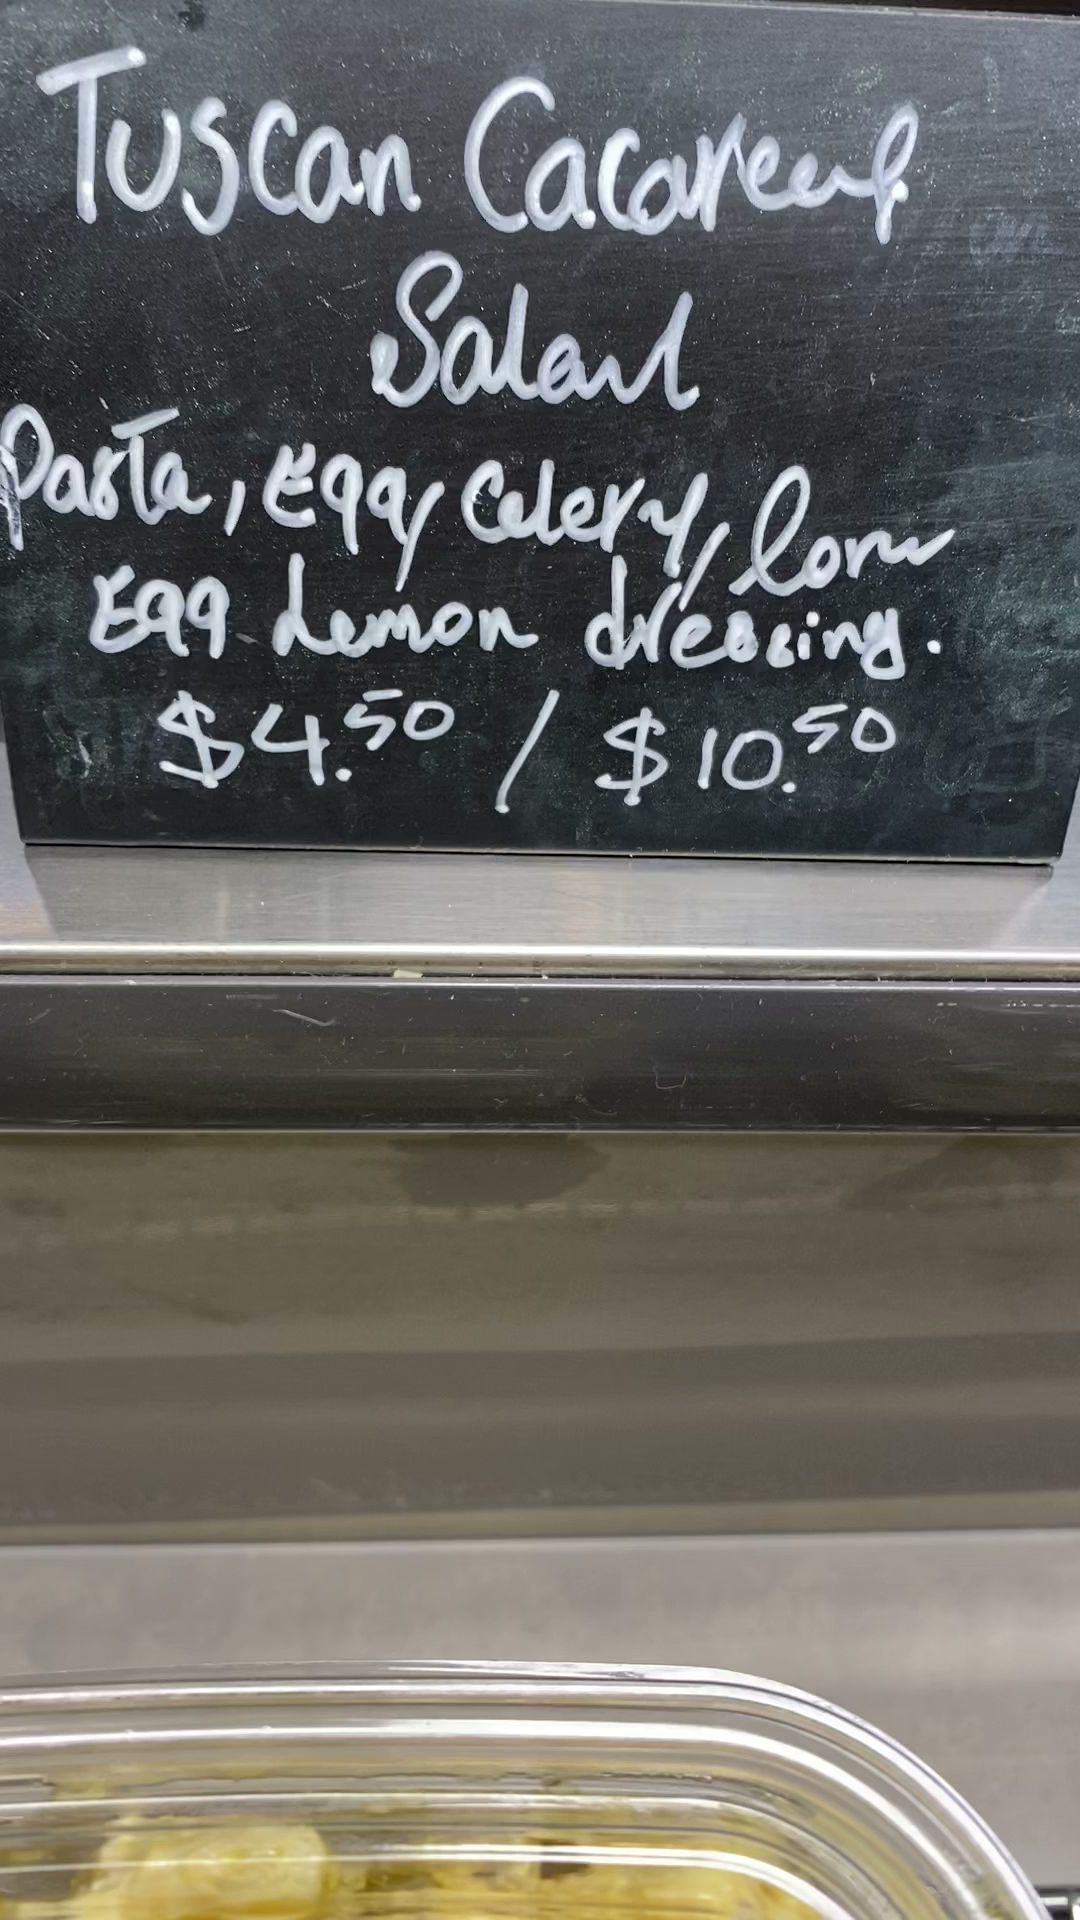 Tuscan
Salad
Pasta, Egg, Celery, Corn
Egg Lemon dressing.
$4.50 / $10.50